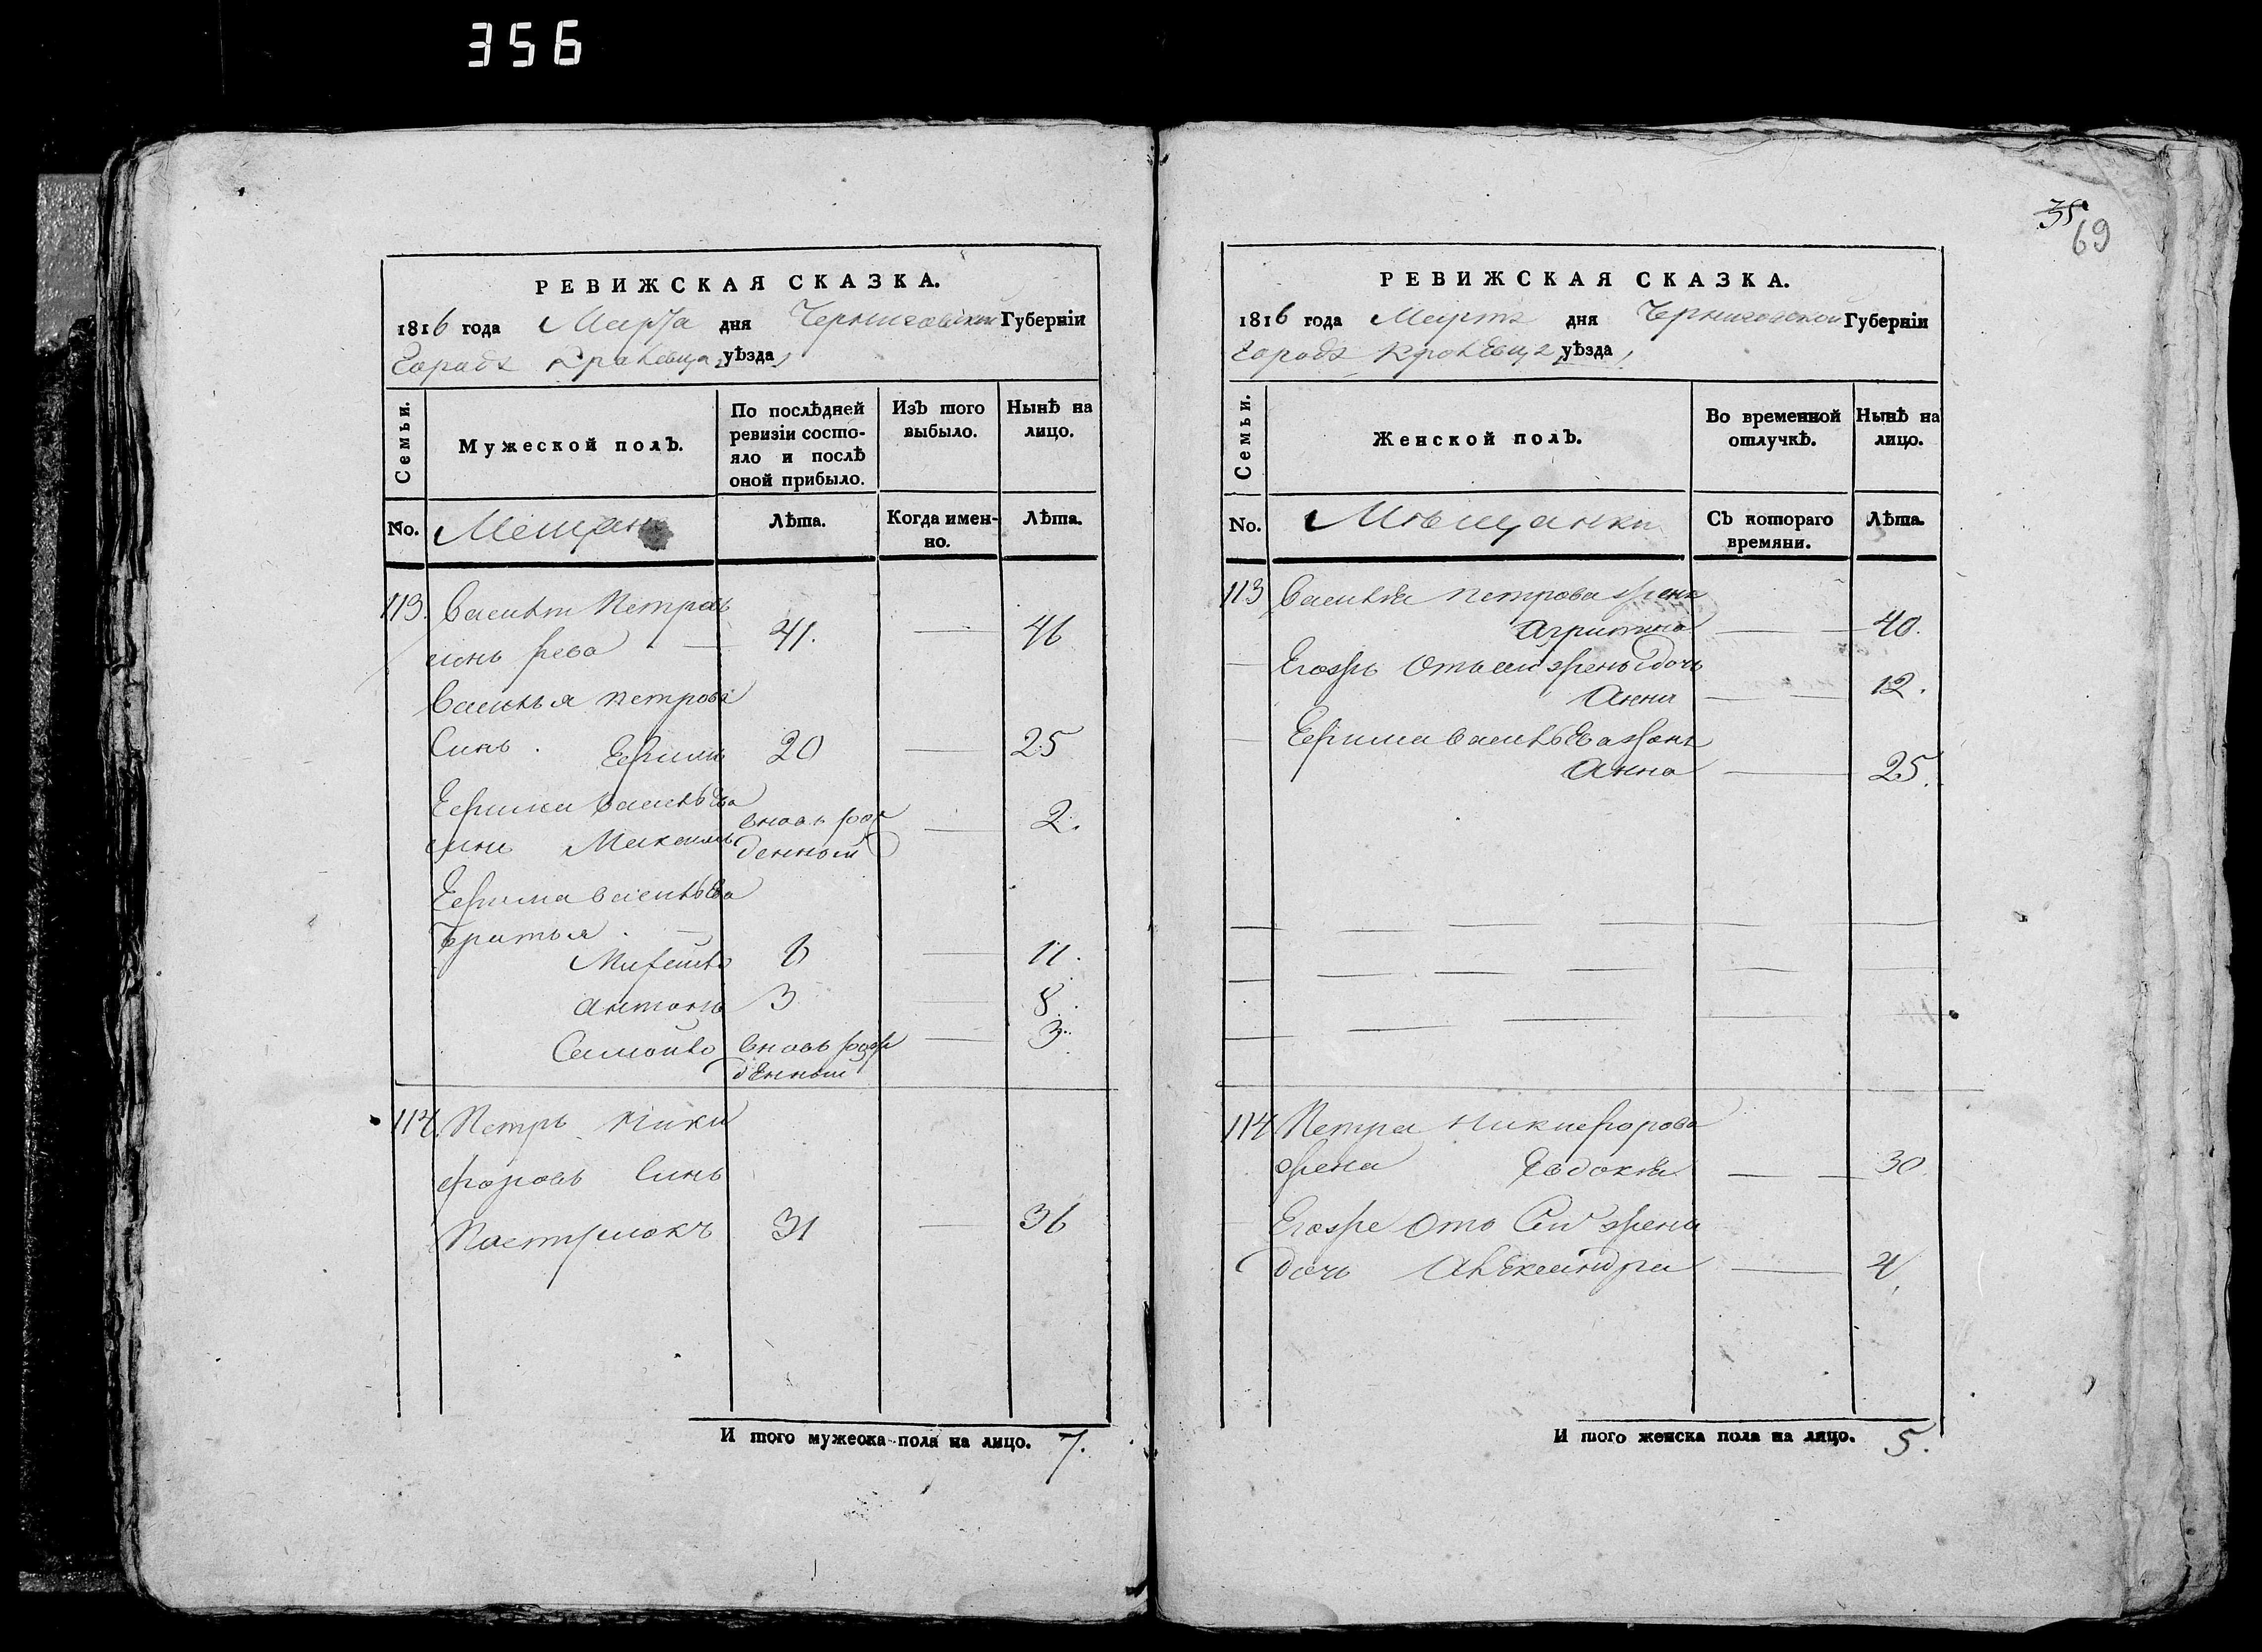 356
35 69
РЕВИЖСКАЯ СКАЗКА.
1816 года Марта дня Черниговской Губерніи
Города Кролевца уѣзда
Семьи.
Мужеской полъ.
По послѣдней ревизіи состояло и послѣ оной прибыло.
Изъ того выбыло.
Нынѣ на лицо.
No.
Мещане
Лѣта.
Когда именно.
Лѣта.
113. Василей Петровъ
синъ Рева 41. 46
Василья Петрова
Синъ Ефимъ 20 25
Ефима Васильева
синъ Максимъ вновь рожденный 2.
Ефима Васильева
братья
6 11.
Антонъ 3 8.
Самойло вновь рожденный 3.
114. Петръ Ники
форовъ Синъ
31 36
И того мужеска пола на лицо. 7.
РЕВИЖСКАЯ СКАЗКА.
1816 года Марта дня Черниговской Губерніи
Города Кролевца уѣзда
Семьи.
Женской полъ.
Во временной отлучкѣ.
Нынѣ на лицо.
No.
Мѣщанки
Съ котораго времяни.
Лѣта.
113 Василія Петрова жена
Агрипина 40.
Егожъ отъ сей жены дочь
Анна 12.
Ефима Васильева жена
Анна 25.
114 Петра Никифорова
жена Евдокія 30
Егоже отъ Сей жены
дочь Александра 4.
И того женска пола на лицо. 5.